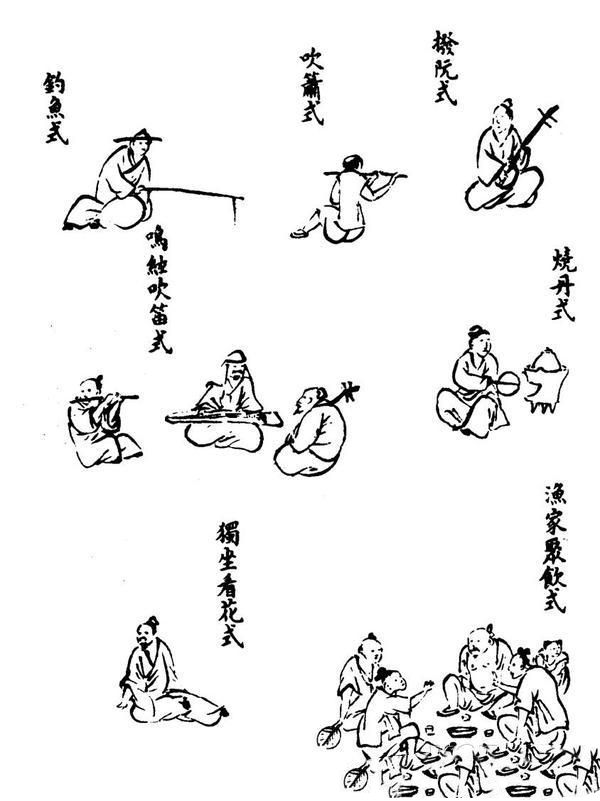 撥阮式
吹簫式
釣魚式
燒丹式
鳴絃吹笛式
漁家聚飲式
獨坐看花式